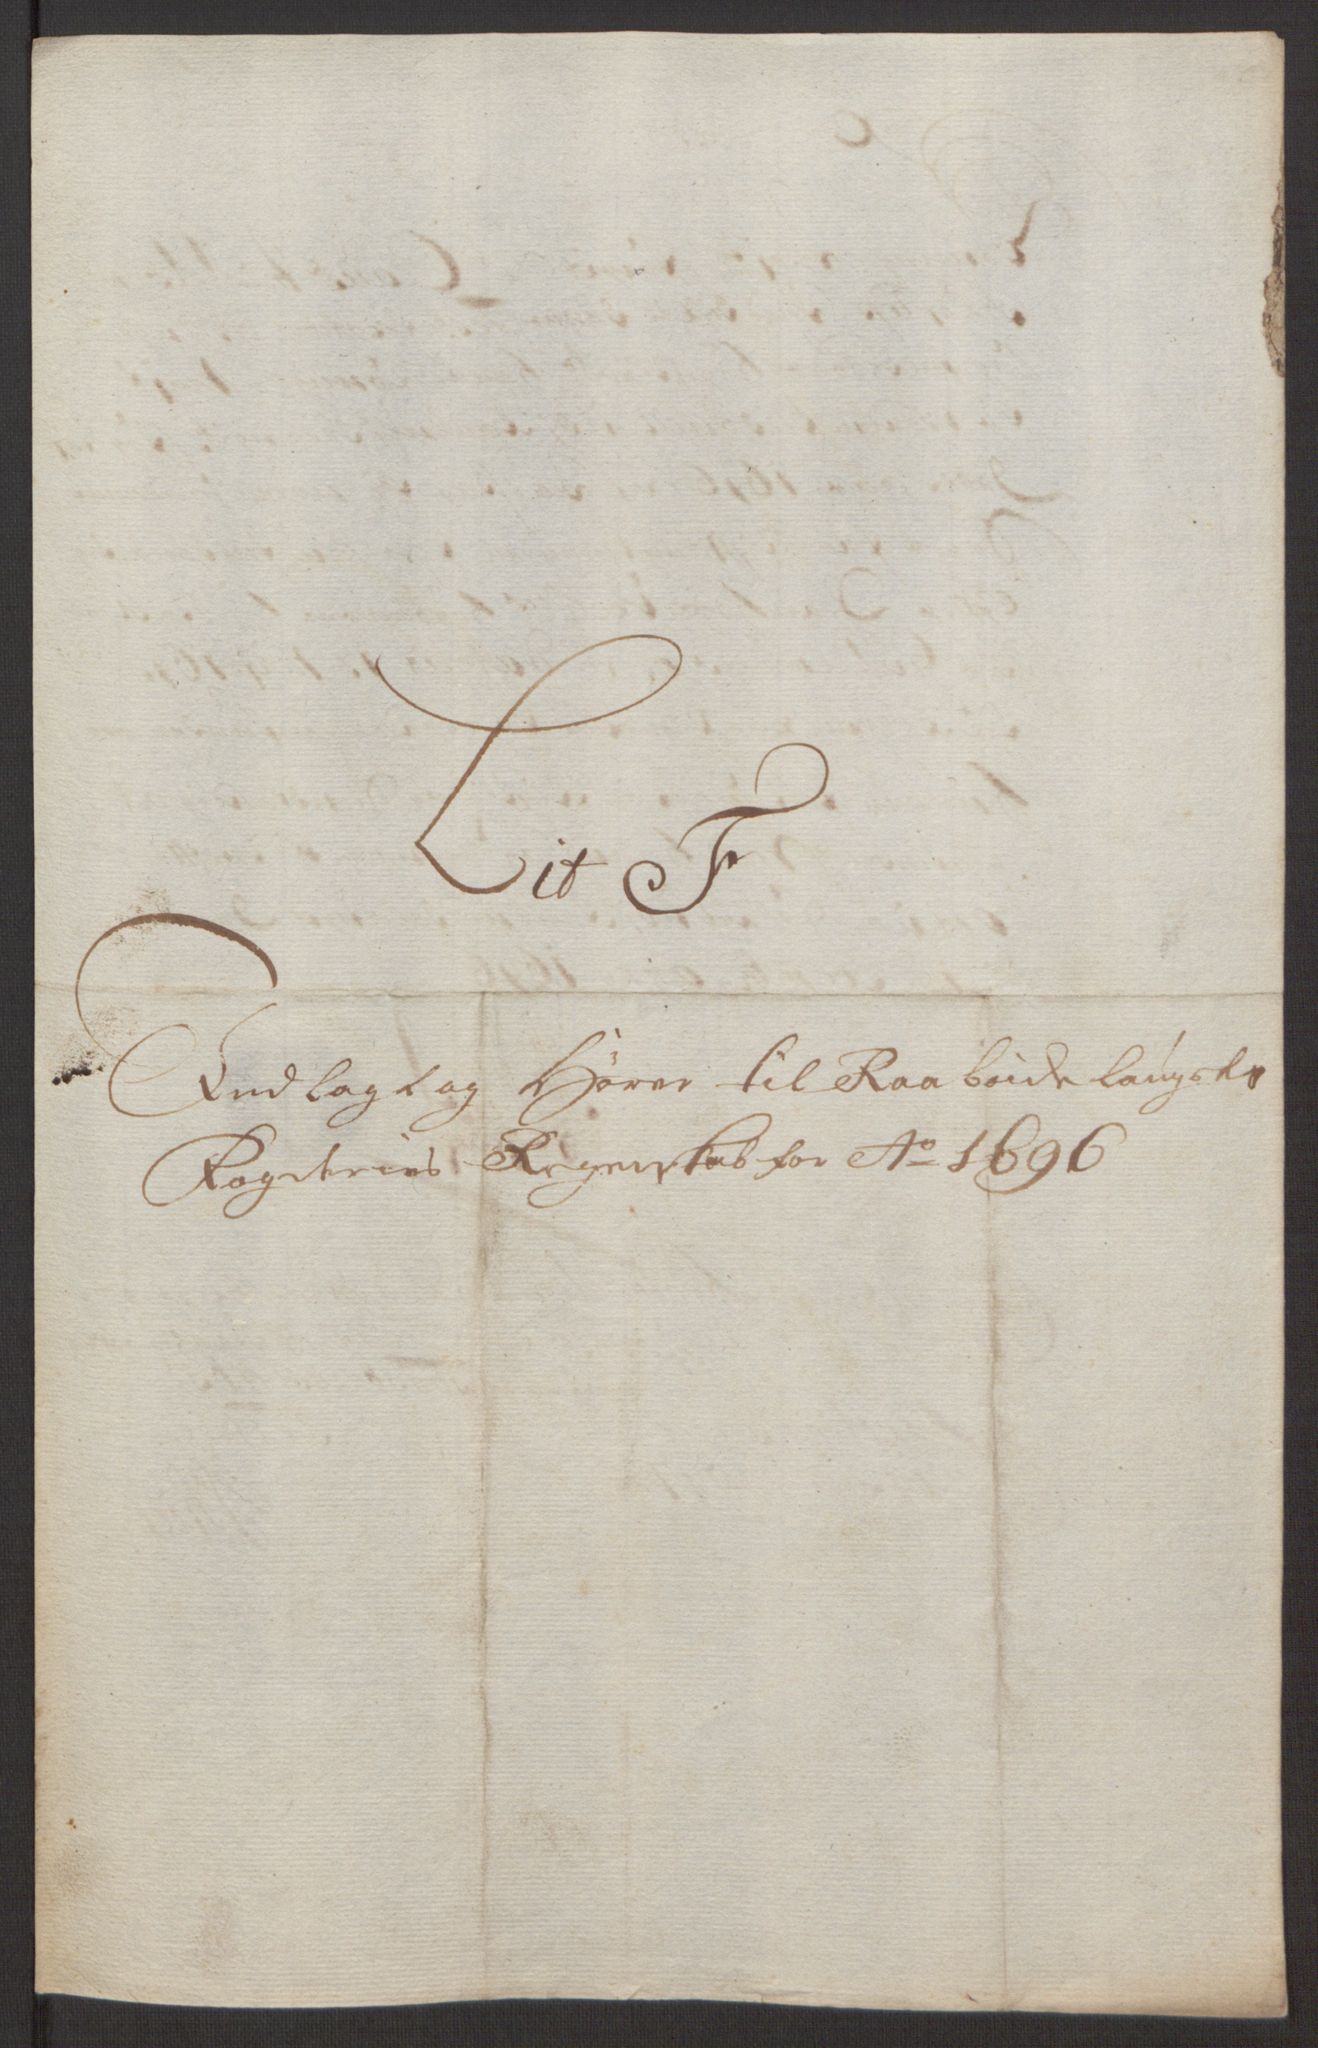 Lit F
Endlagt og Hører til Raabøidelaugets
Fogderies Regenskab for Ao 1696